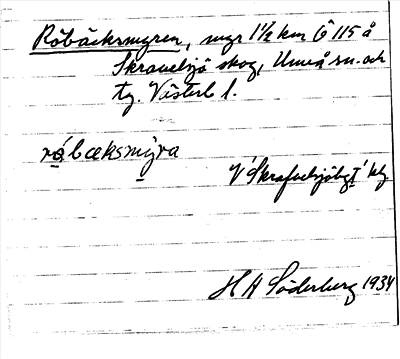 Röbäcksmyren, myr 1 1/2 km Ö 115 å
Skravelsjö skog, Umeå sn. och
tg. Västerb l.
röbæksmyra
V Skrafvelsjöbgt
H A Söderberg 1934